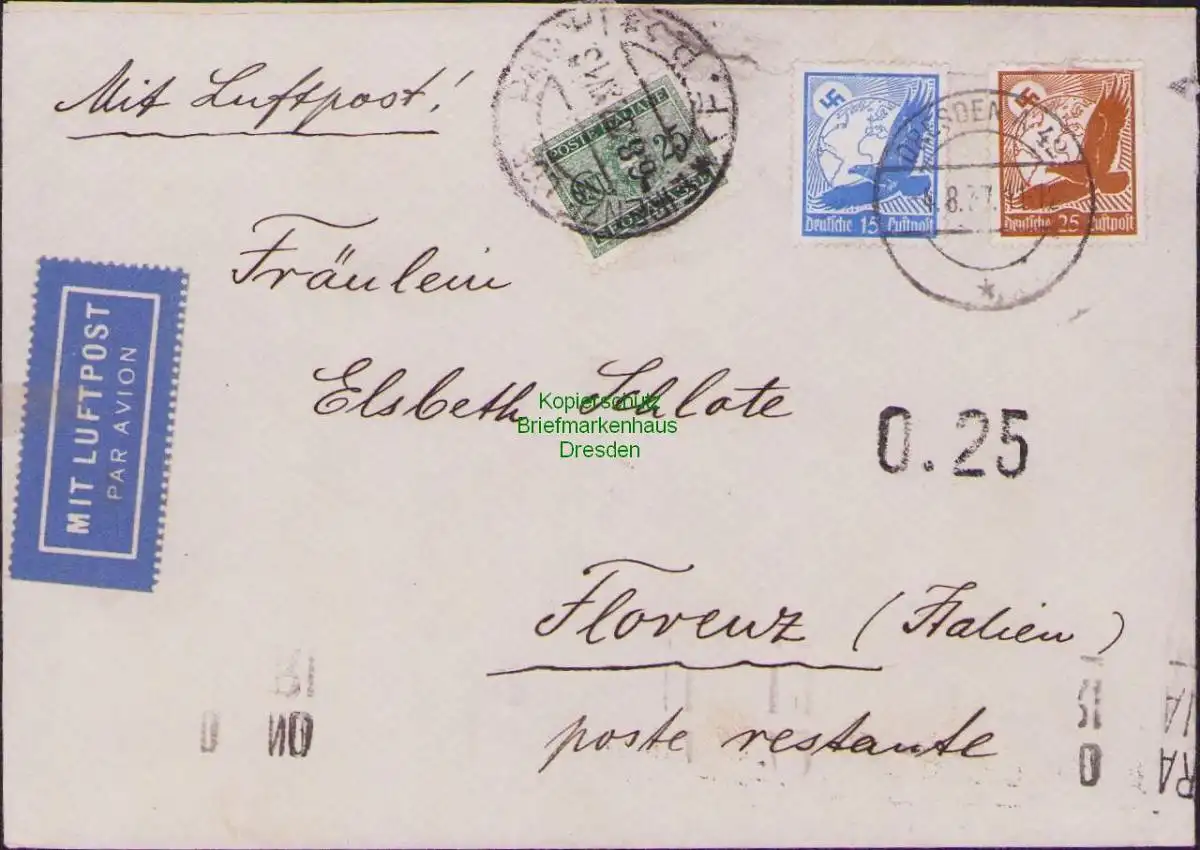 Mit Luftpost!
POSTE ITALIANE
25
Deutsche 15 Luftpost
Deutsche 25 Luftpost
DRESDEN
42
8.37.
MIT LUFTPOST
PAR AVION
Fräulein
Elsbeth Schlote
Kopierschutz
Briefmarkenhaus
Dresden
0.25
Florenz (Italien)
poste restante